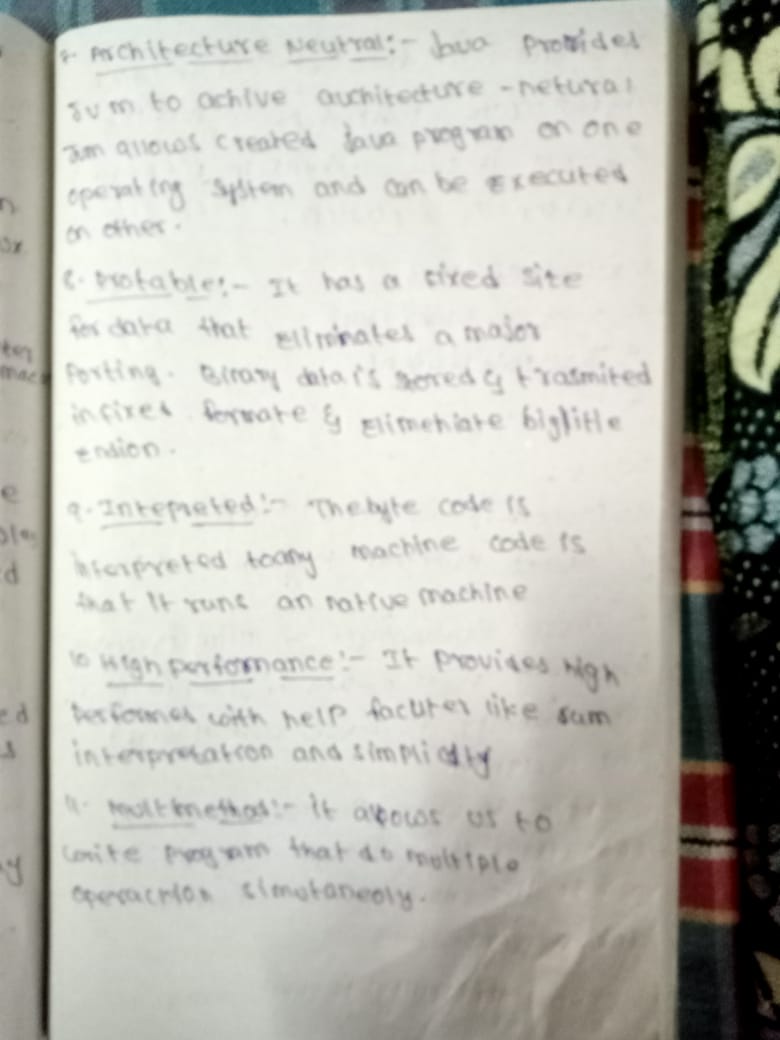 7. Architecture Neutral:- Java Provides
Jvm to achive auchitecture - netural
Jvm allows created Java program on one
operating System and can be Executed
on other.
8. Protable:- It has a fixed Site
for data that Eliminates a major
Porting. Binary data is stored & trasmited
in fixed formate & Elimehiate big/little
Endion.
9. Intepreted:- The byte code is
interpreted to any machine code is
that It runs an native machine
10 High Performance:- It Provides high
Performes with help like Jvm
interpretation and simplicity
11. It allows us to
write Program that do multiple
operaction simutaneoly.
n
ux
ter
mac
e
d
ed
s
y